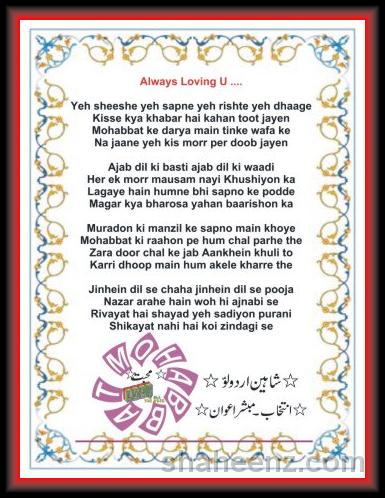 Always Loving U ....
Yeh sheeshe yeh sapne yeh rishte yeh dhaage
Kisse kya khabar hai kahan toot jayen
Mohabbat ke darya main tinke wafa ke
Na jaane yeh kis morr per doob jayen
Ajab dil ki basti ajab dil ki waadi
Her ek morr mausam nayi Khushiyon ka
Lagaye hain humne bhi sapno ke podde
Magar kya bharosa yahan baarishon ka
Muradon ki manzil ke sapno main khoye
Mohabbat ki raahon pe hum chal parhe the
Zara door chal ke jab Aankhein khuli to
Karri dhoop main hum akele kharre the
Jinhein dil se chaha jinhein dil se pooja
Nazar arahe hain woh hi ajnabi se
Rivayat hai shayad yeh sadiyon purani
Shikayat nahi hai koi zindagi se
MOHABBAT
محبت
☆ شاہین اردو لوَ ☆
☆ انتخاب۔ مبشر اعوان ☆
shaheenz.com